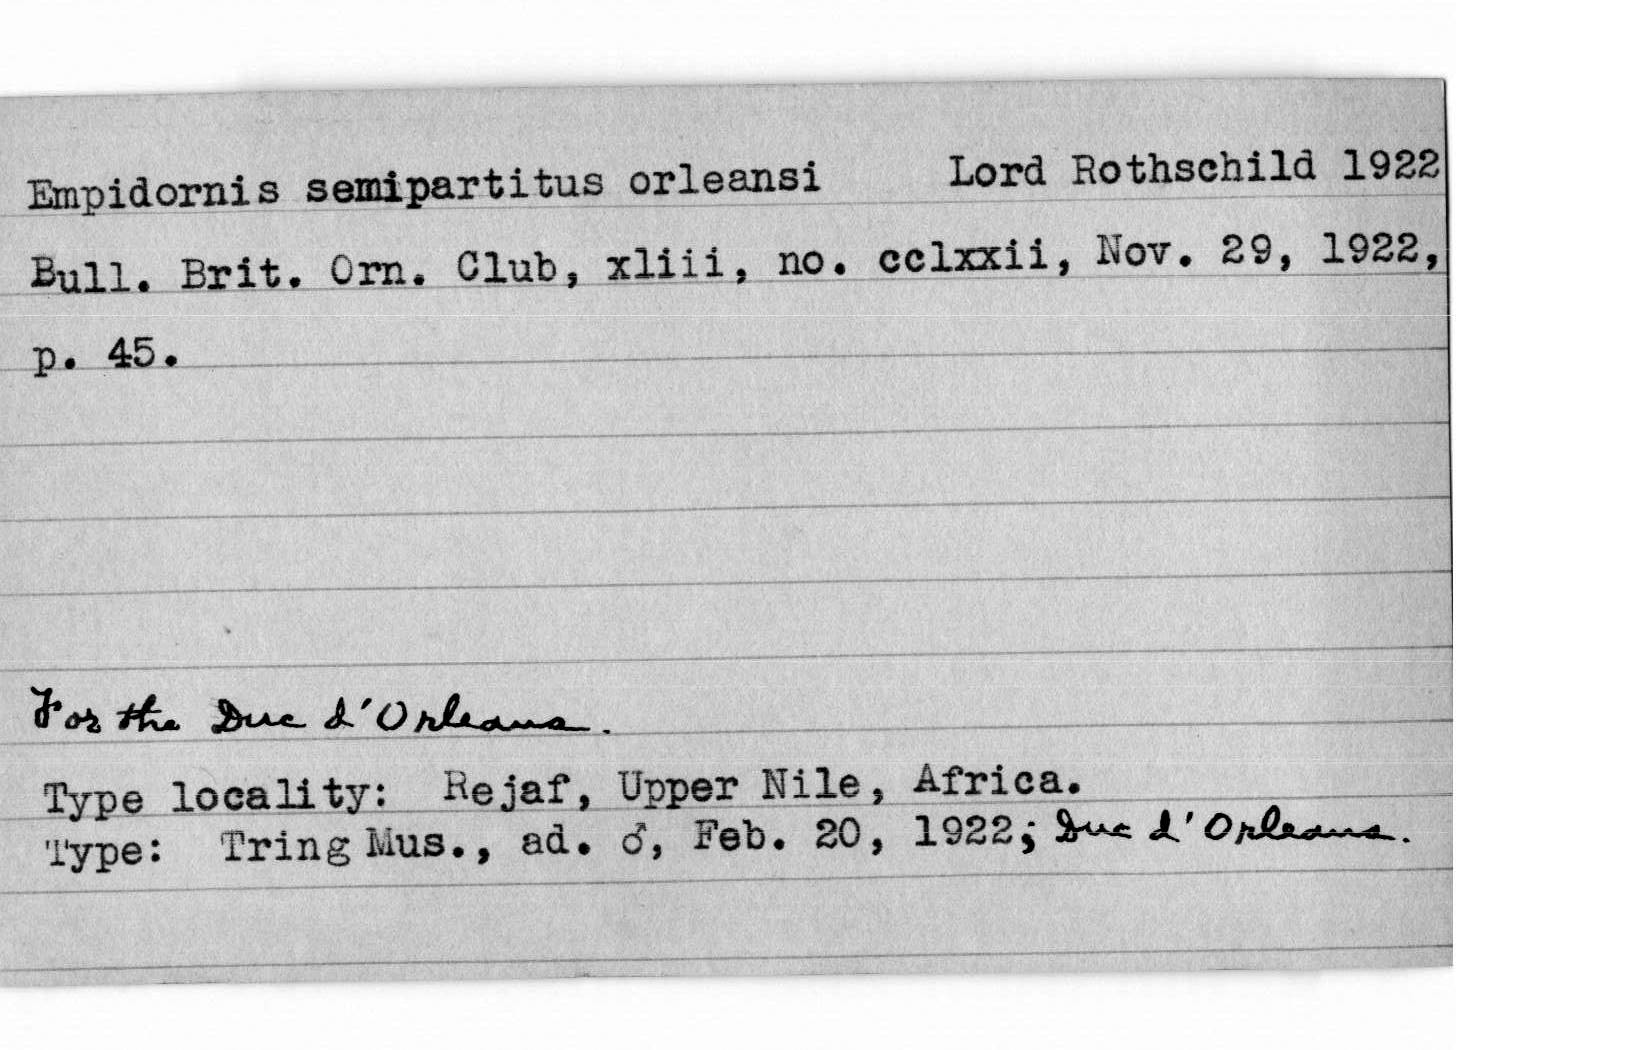 Empidornis semipartitus orleansi Lord Rothschild 1922
Bull. Brit. Orn. Club, xliii, no. cclxxii, Nov. 29, 1922,
p. 45.
For the Duc d'Orleans.
Type locality: Rejaf, Upper Nile, Africa.
Type: Tring Mus., ad. ♂, Feb. 20, 1922; Duc d'Orleans.